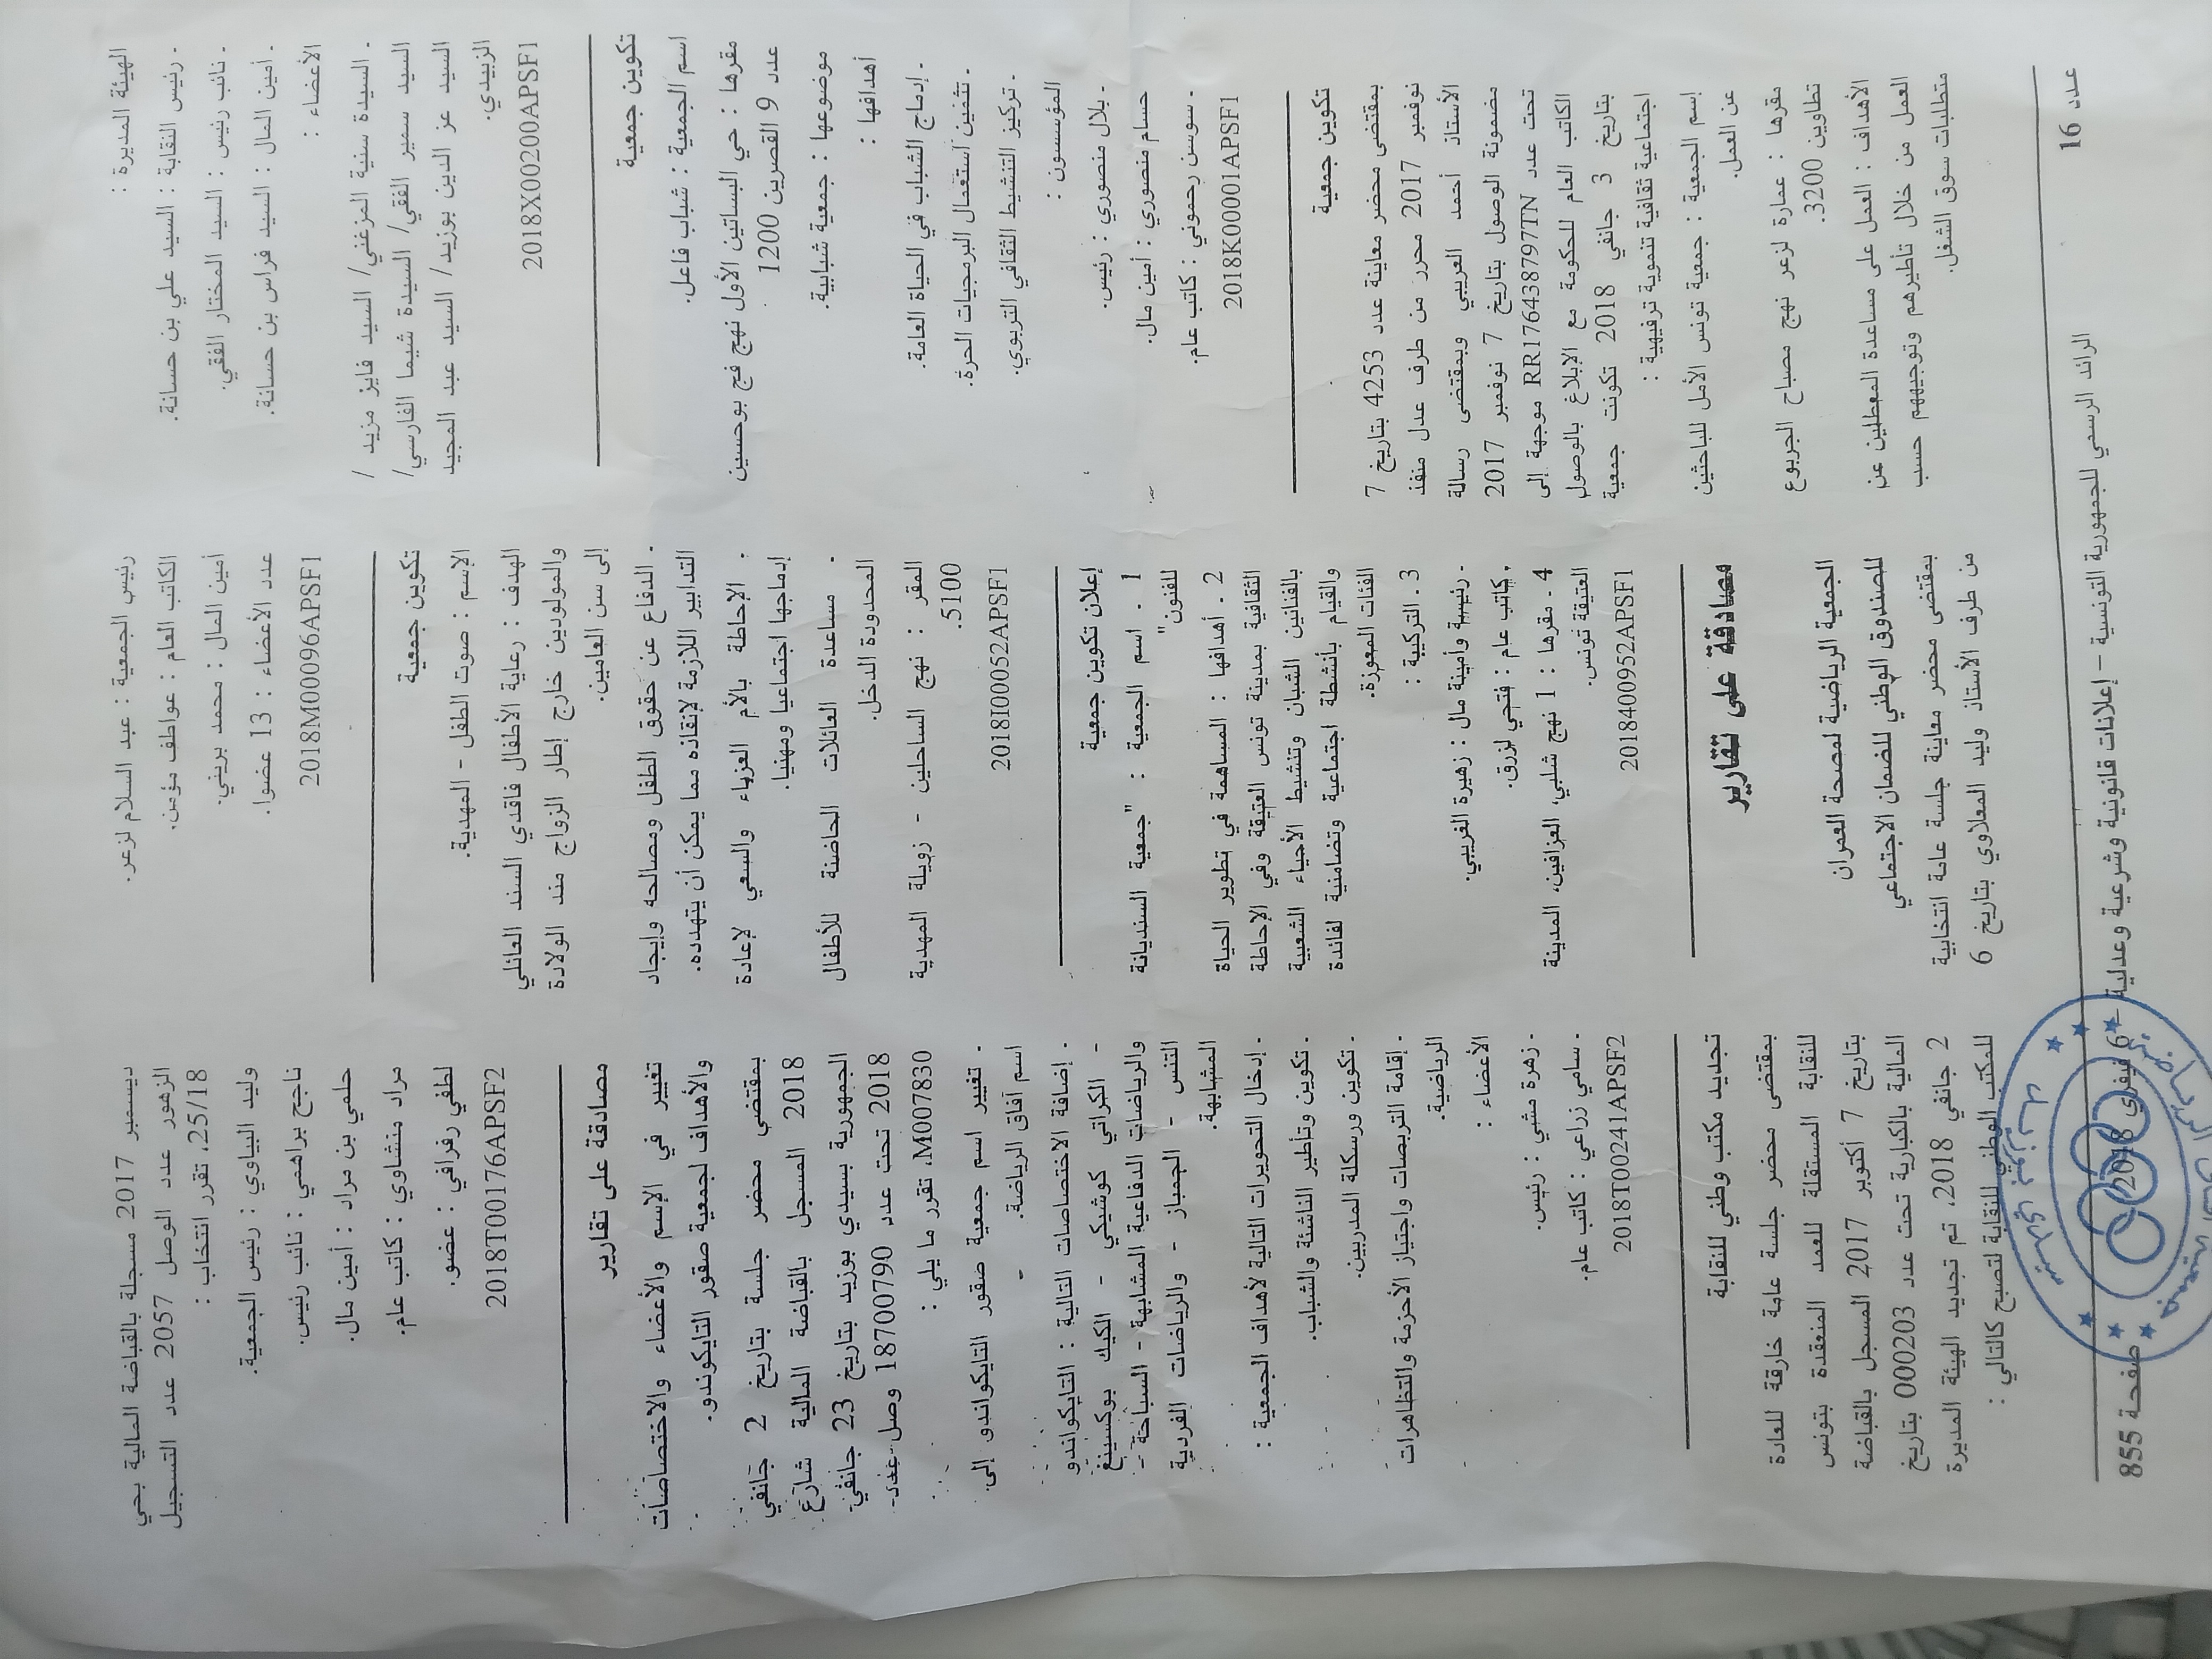 الهيئة المديرة :
- رئيس النقابة : السيد علي بن حسانة.
- نائب رئيس : السيد المختار الفقي.
- أمين المال : السيد فراس بن حسانة.
الأعضاء :
- السيدة سنية المزغني/ السيد فايز مزيد /
السيد سمير الفقي/ السيدة شيما الفارسي/
السيد عز الدين بوزيد/ السيد عبد المجيد
الزبيدي.
2018X00200APSF1
تكوين جمعية
اسم الجمعية : شباب فاعل.
مقرها : حي البساتين الأول نهج فج بوحسين
عدد 9 القصرين 1200
موضوعها : جمعية شبابية.
أهدافها :
- إدماج الشباب في الحياة العامة.
- تثمين استعمال البرمجيات الحرة.
- تركيز التنشيط الثقافي التربوي.
المؤسسون :
- بلال منصوري : رئيس.
حسام منصوري : أمين مال.
- سوسن رحموني : كاتب عام.
2018K00001APSF1
تكوين جمعية
بمقتضى محضر معاينة عدد 4253 بتاريخ 7
نوفمبر 2017 محرر من طرف عدل منفذ
الأستاذ أحمد العريبي وبمقتضى رسالة
مضمونة الوصول بتاريخ 7 نوفمبر 2017
تحت عدد RR176438797TN موجهة إلى
الكاتب العام للحكومة مع الإبلاغ بالوصول
بتاريخ 3 جانفي 2018 تكونت جمعية
اجتماعية ثقافية تنموية ترفيهية :
إسم الجمعية : جمعية تونس الأمل للباحثين
عن العمل.
مقرها : عمارة لزعر نهج مصباح الجربوع
تطاوين 3200.
الأهداف : العمل على مساعدة المعطلين عن
العمل من خلال تأطيرهم وتوجيههم حسب
متطلبات سوق الشغل.
رئيس الجمعية : عبد السلام لزعر.
الكاتب العام : عواطف مؤمن.
أمين المال : محمد بريني.
عدد الأعضاء : 13 عضوا.
2018M00096APSF1
تكوين جمعية
الإسم : صوت الطفل - المهدية.
الهدف : رعاية الأطفال فاقدي السند العائلي
والمولودين خارج إطار الزواج منذ الولادة
إلى سن العامين.
- الدفاع عن حقوق الطفل ومصالحه وإيجاد
التدابير اللازمة لإنقاذه مما يمكن أن يتهدده.
- الإحاطة بالأم العزباء والسعي لإعادة
إدماجها اجتماعيا ومهنيا.
- مساعدة العائلات الحاضنة للأطفال
المحدودة الدخل.
المقر : نهج الساحلين - زويلة المهدية
5100.
2018I00052APSF1
إعلان تكوين جمعية
1 - اسم الجمعية : "جمعية السنديانة
للفنون"
2 - أهدافها : المساهمة في تطوير الحياة
الثقافية بمدينة تونس العتيقة وفي الإحاطة
بالفنانين الشبان وتنشيط الأحياء الشعبية
والقيام بأنشطة اجتماعية وتضامنية لفائدة
الفئات المعوزة.
3 - التركيبة :
- رئيسة وأمينة مال : زهيرة الغريبي.
- كاتب عام : فتحي لزرق.
4 - مقرها : 1 نهج شلبي، العزافين، المدينة
العتيقة تونس.
2018400952APSF1
مصادقة على تقارير
الجمعية الرياضية لمصحة العمران
للصندوق الوطني للضمان الاجتماعي
بمقتضى محضر معاينة جلسة عامة انتخابية
من طرف الأستاذ وليد المعلاوي بتاريخ 6
ديسمبر 2017 مسجلة بالقباضة المالية بحي
الزهور عدد الوصل 2057 عدد التسجيل
25/18، تقرر انتخاب :
وليد البياوي : رئيس الجمعية.
ناجح براهمي : نائب رئيس.
حلمي بن مراد : أمين مال.
مراد منشاوي : كاتب عام.
لطفي رفرافي : عضو.
2018T00176APSF2
مصادقة على تقارير
تغيير في الإسم والأعضاء والاختصاصات
والأهداف لجمعية صقور التايكوندو.
بمقتضى محضر جلسة بتاريخ 2 جانفي
2018 المسجل بالقباضة المالية شارع
الجمهورية بسيدي بوزيد بتاريخ 23 جانفي
2018 تحت عدد 18700790 وصل عدد
M007830، تقرر ما يلي :
- تغيير اسم جمعية صقور التايكواندو إلى
اسم آفاق الرياضة.
- إضافة الاختصاصات التالية : التايكواندو
- الكراتي كوشيكي - الكيك بوكسينغ
والرياضات الدفاعية المشابهة - السباحة -
التنس - الجمباز - والرياضات الفردية
المشابهة.
- إدخال التحويرات التالية لأهداف الجمعية :
- تكوين وتأطير الناشئة والشباب.
- تكوين ورسكلة المدربين.
- إقامة التربصات واجتياز الأحزمة والتظاهرات
الرياضية.
الأعضاء :
- زهرة مشي : رئيس.
- سامي زراعي : كاتب عام.
2018T00241APSF2
تجديد مكتب وطني للنقابة
بمقتضى محضر جلسة عامة خارقة للعادة
للنقابة المستقلة للعمد المنعقدة بتونس
بتاريخ 7 أكتوبر 2017 المسجل بالقباضة
المالية بالكبارية تحت عدد 000203 بتاريخ
2 جانفي 2018، تم تجديد الهيئة المديرة
للمكتب الوطني للنقابة لتصبح كالتالي :
عدد 16 الرائد الرسمي للجمهورية التونسية – إعلانات قانونية وشرعية وعدلية – 6 فيفري 2018 صفحة 855